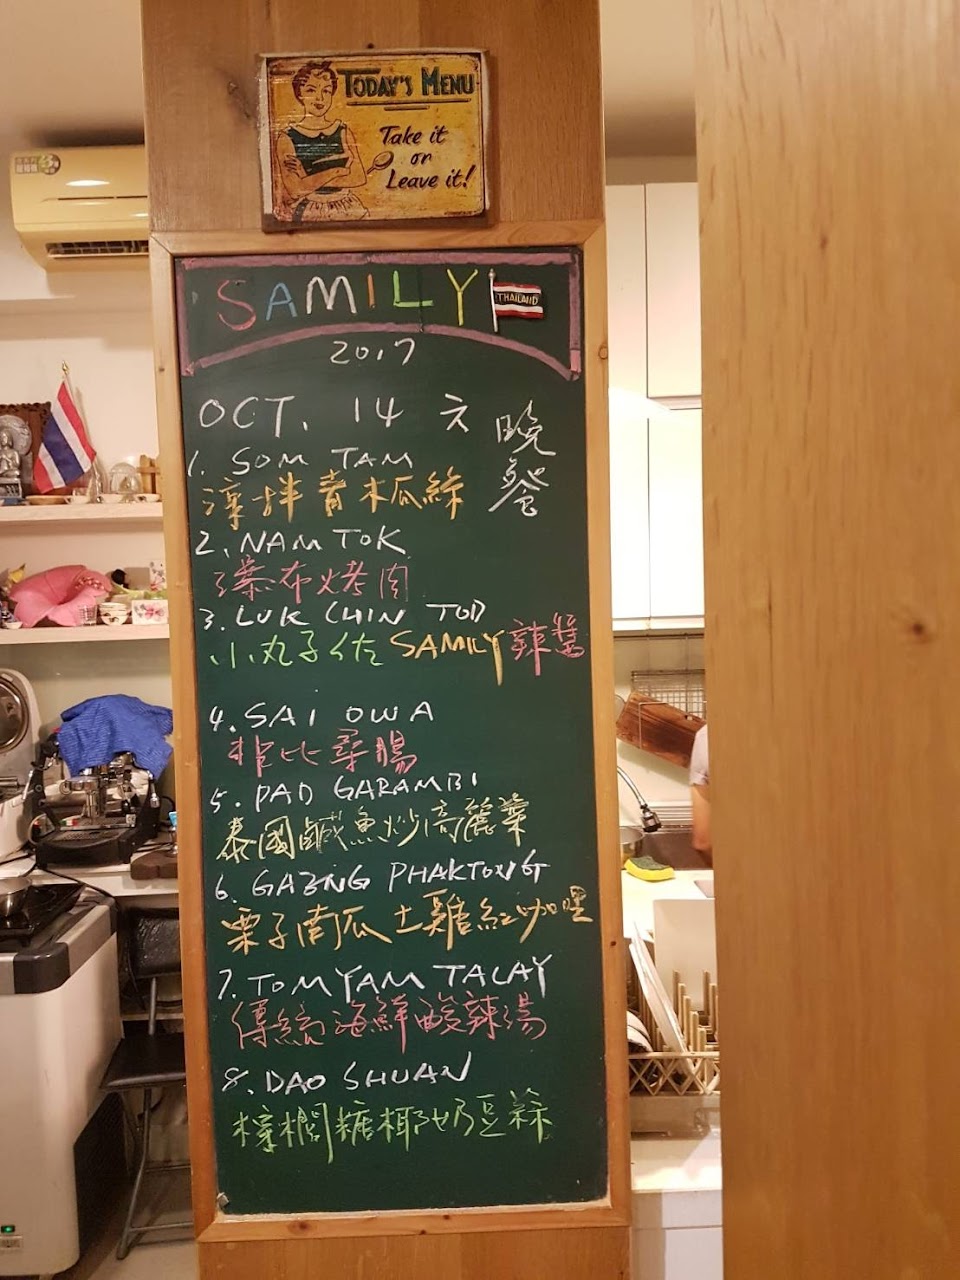 TODAY'S MENU
Take it
or
Leave it!
SAMILY
THAILAND
2017
OCT. 14 六
晚餐
1. SOM TAM
涼拌青木瓜絲
2. NAM TOK
瀑布烤肉
3. LUK CHIN TOD
小丸子佐 SAMILY辣醬
4. SAI OWA
5. PAD GARAMBI
泰國鹹魚炒高麗菜
6. GAENG PHAKTONGT
栗子南瓜土雞紅咖哩
7. TOM YAM TALAY
傳統海鮮酸辣湯
8. DAO SHUAN
棕櫚糖椰奶豆蒜